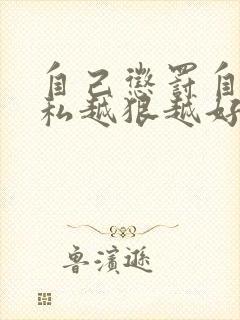 自己惩罚自
私越狠越好
鲁滨逊